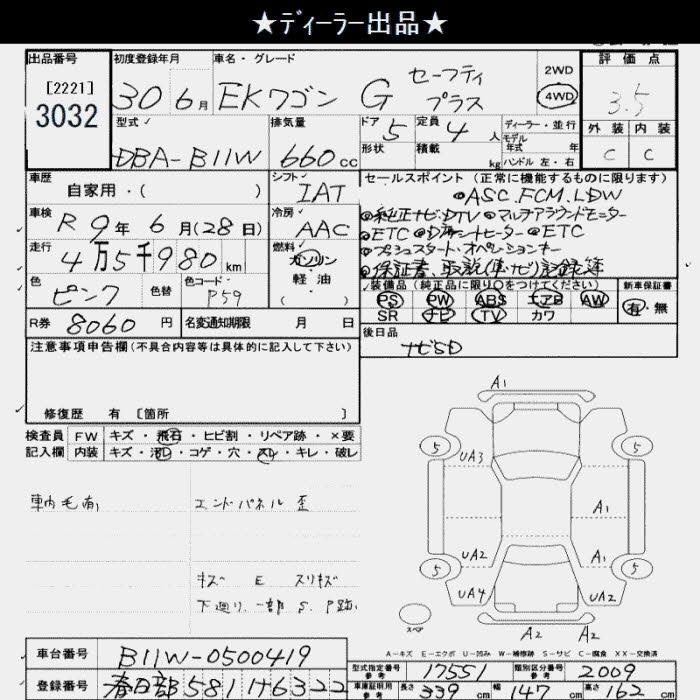 ★ディーラー出品★
出品番号
[2221]
3032
初度登録年月
30年6月
車名・グレード
EKワゴン G セーフティ プラス
2WD
4WD
評価点
3.5
外装 内装
C C
型式
DBA-B11W
排気量
660cc
ドア 5
形状
定員 4人
積載 kg
ディーラー・並行
モデル年式 年
ハンドル 左・右
車歴
自家用・( )
シフト
IAT
セールスポイント(正常に機能するものに限ります)
◎ASC.FCM.LDW
◎純正ナビ.DTV ◎マルチアラウンドモニター
◎ETC ◎ ETC
◎プッシュスタート・オペレーションキー
◎保証書、取説(車・ナビ)記録簿
車検
R 9年 6月(28日)
冷房
AAC
走行
4万5千980km
燃料
ガソリン
軽・油
( )
色
ピンク
色替
色コード
P59
R券 8060円
名変通知期限 月 日
装備品(純正品に限り○をつけてください)
PS PW ABS エアB AW
SR ナビ TV カワ
新車保証書
有・無
後日品
ナビSD
注意事項申告欄(不具合内容等は具体的に記入して下さい)
修復歴 有 〔箇所 〕
検査員記入欄
FW キズ・飛石・ヒビ割・リペア跡・×要
内装 キズ・汚レ・コゲ・穴・スレ・キレ・破レ
車内毛有
エンドパネル 歪
キズ E スリキズ
下廻り、一部 S、P跡
A1
5
5
UA3
A1
UA2
A1
5
5
UA4
UA2
スペア
A2 A2
A-キズ E-エクボ U-凹み W-補修跡 S-サビ C-腐食 XX-交換済
車台番号 B11W-0500419
登録番号 春日部581 け6322
型式指定番号 参考 17551
類別区分番号 参考 2009
車庫証明用 参考 長さ 339cm 幅 147cm 高さ 162cm